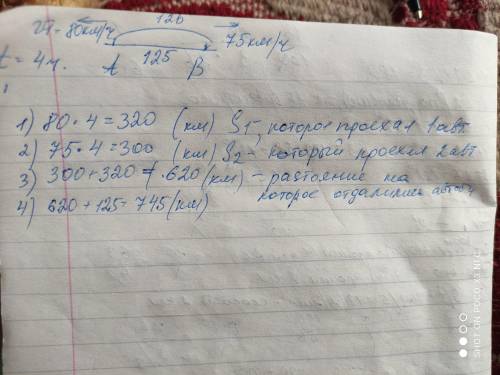 120
v1 - 80км/ч 75км/ч
t = 4ч. A 125 B
1) 80 • 4 = 320 (км) S1, которое проехал 1авт.
2) 75 • 4 = 300 (км) S2 - который проехал 2авт
3) 300 + 320 = 620 (км) - растояние на
которое отдалились
4) 620 + 125 = 745 (км)
SHOT ON POCO X3 NFC